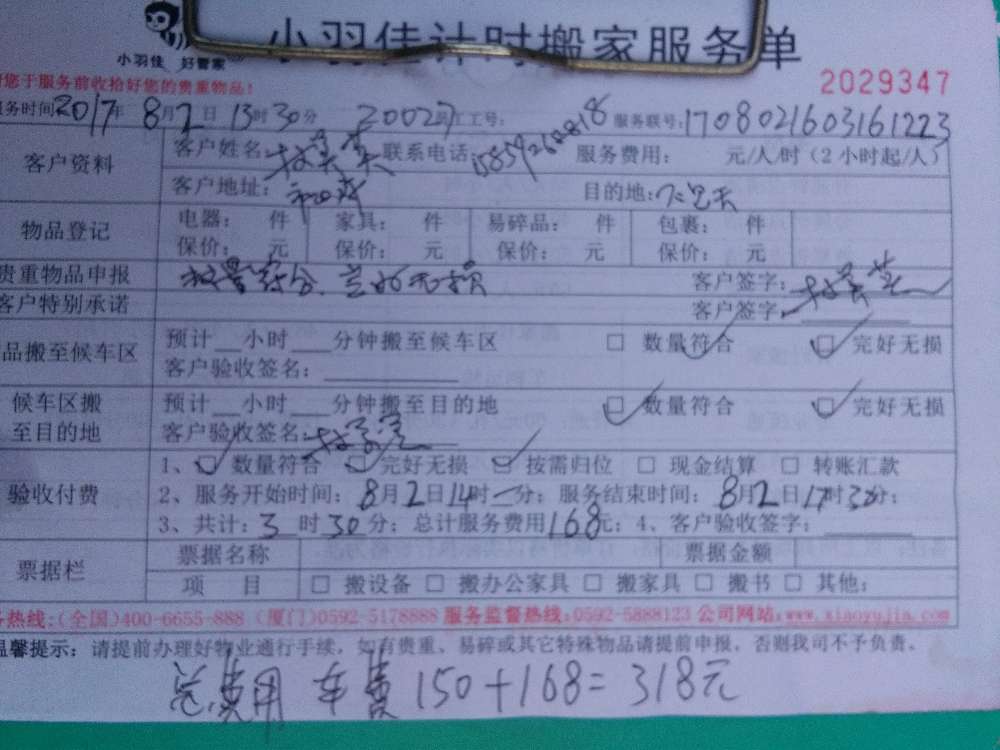 小羽佳 好管家
小羽佳计时搬家服务单
您于服务前收拾好您的贵重物品!
2029347
务时间2017年8月2日13时30分 20027员工工号: 服务联号:1708021603161223
客户资料 客户姓名: 联系电话: 服务费用: 元/人/时(2小时起/人)
客户地址: 目的地:
物品登记 电器: 件 家具: 件 易碎品: 件 包裹: 件
保价: 元 保价: 元 保价: 元 保价: 元
贵重物品申报 数量符合、完好无损 客户签字:
客户特别承诺 客户签字:
品搬至候车区 预计__小时___分钟搬至候车区 □ 数量符合 □ 完好无损
客户验收签名:
候车区搬至目的地 预计__小时___分钟搬至目的地 □ 数量符合 □ 完好无损
客户验收签名:
验收付费 1、□ 数量符合 □ 完好无损 □ 按需归位 □ 现金结算 □ 转账汇款
2、服务开始时间:8月2日14时一分;服务结束时间:8月2日17时30分;
3、共计:3时30分;总计服务费用168元;4、客户验收签字:
票据栏 票据名称 票据金额
项 目 □ 搬设备 □ 搬办公家具 □ 搬家具 □ 搬书 □ 其他:
务热线:(全国)400-6655-888 (厦门)0592-5178888 服务监督热线:0592-5888123 公司网站:www.xiaoyujia.com
温馨提示:请提前办理好物业通行手续,如有贵重、易碎或其它特殊物品请提前申报,否则我司不予负责。
总费用 车费150+168=318元